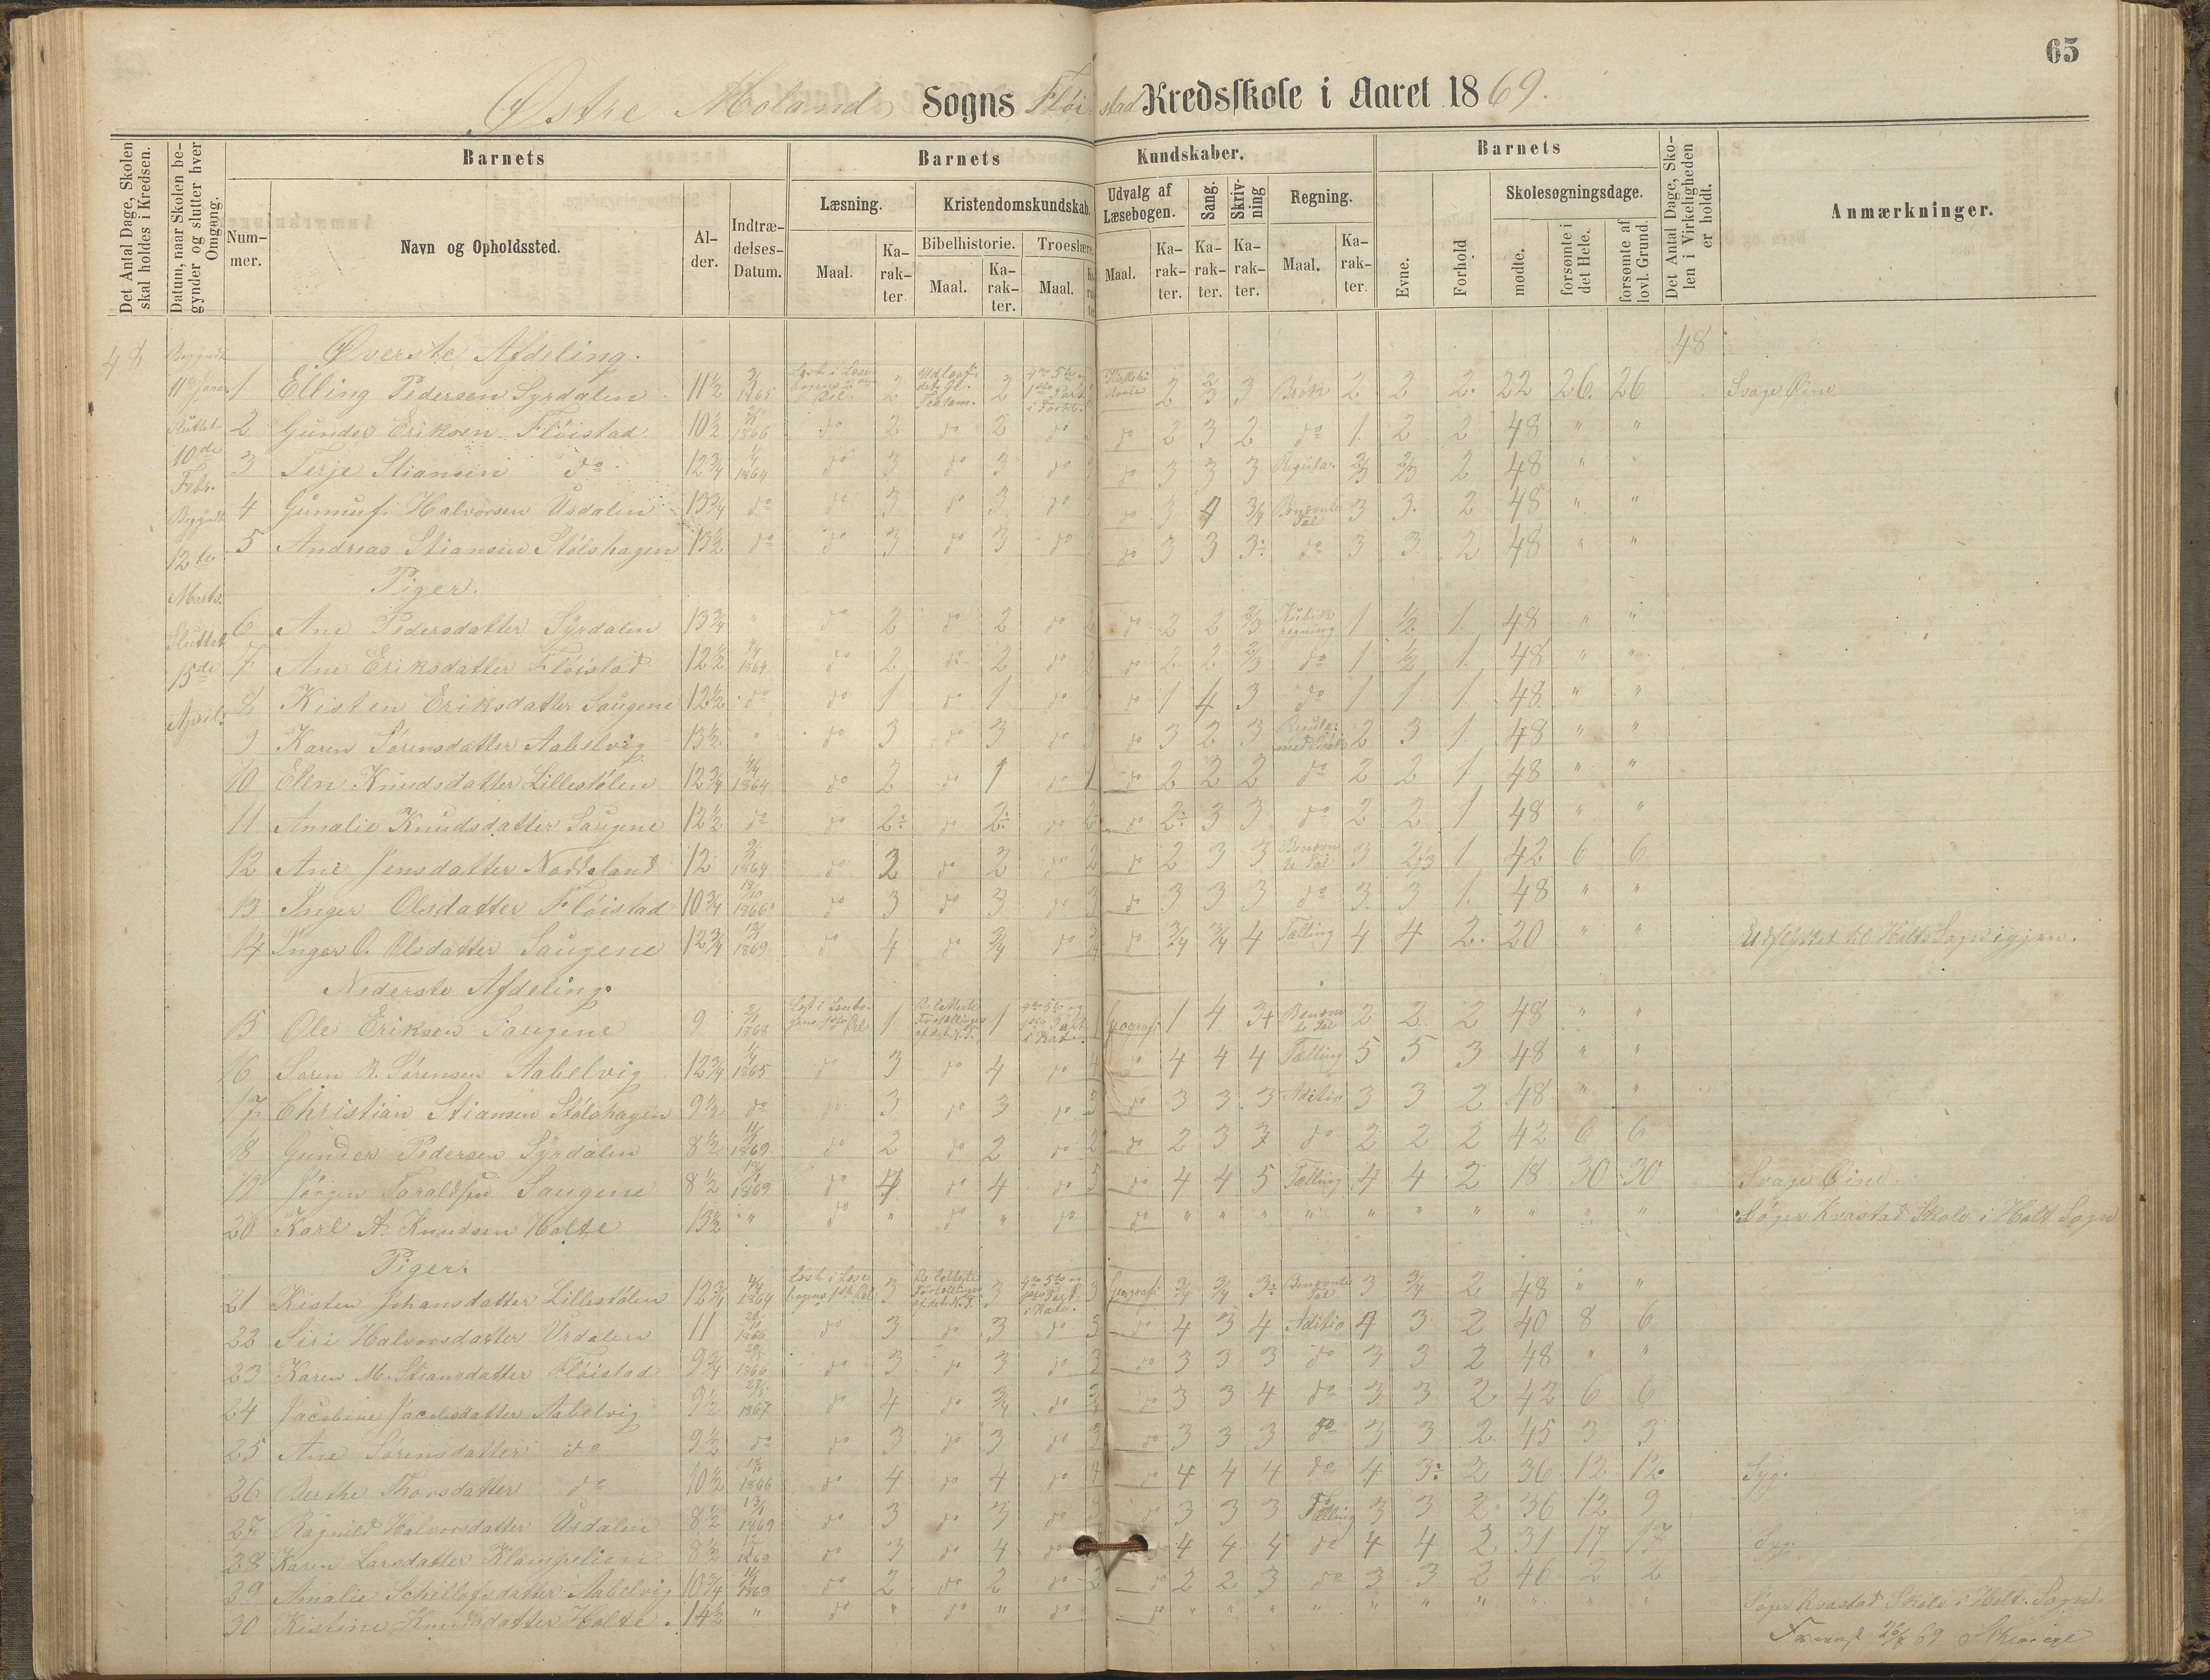 65
Østre Moland Sogns Fløistad Kredsskole i Aaret 1869.
Det Antal Dage, Skolen skal holdes i Kredsen.
Datum, naar Skolen begynder og slutter hver Omgang.
Barnets
Barnets Kundskaber.
Barnets
Det Antal Dage, Skolen i Virkeligheden er holdt.
Anmærkninger.
Nummer.
Navn og Opholdssted.
Alder.
Indtrædelses-Datum.
Læsning.
Kristendomskundskab.
Udvalg af Læsebogen.
Sang.
Skrivning
Regning.
Evne.
Forhold
Skolesøgningsdage.
Bibelhistorie.
Troeslære.
Maal.
Karakter.
Maal.
Karakter.
Maal.
Maal.
Karakter.
Karakter.
Karakter.
Maal.
Karakter.
mødte.
forsømte i det Hele.
forsømte af lovl. Grund.
48
Begyndt 11te Janr.
Sluttet 10de Febr.
Begyndt 12te Marts.
Sluttet 15de April.
Øverste Afdeling.
48
1 Elling Pedersen Syrdalen 11½ 1865 2 2 2 2/3 3 Brøk 2 2 2 22 26 26 Svage Øine
2 Gunder Eriksen Fløistad 10½ 1866 do 2 do 2 do do 2 3 2 do 1 2 2 48 " "
3 Terje Stiansen do 12¾ 1864 do 3 do 3 do do 3 3 3 2/3 2/3 2 48 " "
4 Gunnuf Halvorsen Urdalen 13¾ do do 3 do 3 do do 3 4 3/4 Benævnte Tal 3 3 2 48 " "
5 Andreas Stiansen Stølshagen 13½ do do 3 do 3 do do 3 3 3 do 3 3 2 48 " "
Piger.
6 Ane Pedersdatter Syrdalen 13¾ " do 2 do 2 do do 2 2 2/3 Kubikregning 1 ½ 1 48 " "
7 Ane Eriksdatter Fløistad 12½ 1864 do 2 do 2 do do 2 2 2/3 do 1 ½ 1 48 " "
8 Kisten Eriksdatter Saugene 12½ do do 1 do 1 do do 1 4 3 do 1 1 1 48 " "
9 Karen Sørensdatter Aabelvig 13½ " do 3 do 3 do do 3 2 3 2 3 1 48 " "
10 Elen Knudsdatter Lillestølen 12¾ 1864 do 2 do 1 do 1 do 2 2 2 do 2 2 1 48 " "
11 Amalie Knudsdatter Saugene 12½ do do 2 do 2 do 2 do 2 3 3 do 2 2 1 48 " "
12 Ane Jensdatter Naddeland 12 1864 do 2 do 2 do 2 do 2 3 3 Benævnte Tal 3 2/3 1 42 6 6
13 Inger Olsdatter Fløistad 10¾ 1866 do 3 do 3 do 3 do 3 3 3 do 3 3 1 48 " "
14 Inger O. Olsdatter Saugene 12¾ 1869 do 4 do 3/4 do 3/4 do 3/4 3/4 4 Tælling 4 4 2 20 " " Udflyttet til Holts Sogn igjen.
Nederste Afdeling.
15 Ole Eriksen Saugene 9 1868 1 1 1 Geografi 1 4 3+ Benævnte Tal 2 2 2 48 " "
16 Søren R. Sørensen Aabelvig 12¾ 1865 do 3 do 4 do 4 do 4 4 4 Tælling 5 5 3 48 " "
17 Christian Stiansen Stølshagen 9½ do do 3 do 3 do 3 do 3 3 3 Aditio 3 3 2 48 " "
18 Gunder Pedersen Syrdalen 8½ 1869 do 2 do 2 do 2 do 2 3 3 do 2 2 2 42 6 6
19 Jørgen Taraldsen Saugene 8½ 1869 do 4 do 4 do 5 do 4 4 5 Tælling 4 4 2 18 30 30 Svage Øine
20 Karl A. Knudsen Holte 13½ " do " do " do do " " " " " " " " " " Søger Kvastad Skole i Holt Sogn
Piger.
21 Kisten Johansdatter Lillestølen 12¾ 1864 3 3 3 Geografi 3/4 3/4 3 Benævnte Tal 3 3/4 2 48 " "
22 Siri Halvorsdatter Urdalen 11 1866 do 3 do 3 do 3 do 4 3 4 Aditio 4 3 2 40 8 6
23 Karen M. Stiansdatter Fløistad 9¾ 1866 do 3 do 3 do 3 do 3 3 3 do 3 3 2 48 " "
24 Jacobine Jacobsdatter Aabelvig 9½ 1867 do 4 do 3/4 do 3/4 do 3 3 4 do 3 3 2 42 6 6
25 Ane Sørensdatter do 9½ do do 3 do 3 do 3 do 3 3 3 do 3 3 2 45 3 3
26 Berthe Thorsdatter do 10½ 1866 do 4 do 4 do 4 do 4 4 4 do 4 3 2 36 12 12 Syg.
27 Ragnild Halvorsdatter Urdalen 8½ 1869 do 3 do 3 do do 3 3 3 Tælling 3 3 2 36 12 9
28 Karen Larsdatter Klampelien 8½ do 3 do 4 do do 4 4 4 do 4 4 2 31 17 17 Syg.
29 Amalie Aabelvig 10¾ 1869 do 2 do 2 do 2 do 2 2 3 do 3 3 2 46 2 2
30 Kistine Knudsdatter Holte 14½ " do " do " do do " " " " " " " " " " Søger Kvastad Skole i Holt Sogn.
69